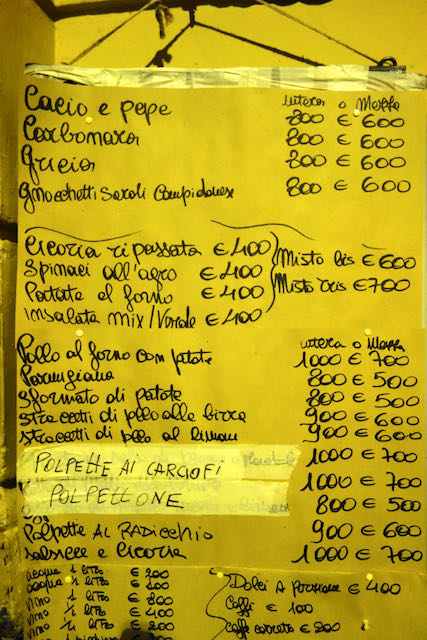 intera o Mezza
Cacio e pepe 800 € 600
Carbonara 800 € 600
Gricia 800 € 600
Gnocchetti Sardi Campidanese 800 € 600
Cicoria ripassata € 400
Spinaci all'agro € 400
Patate al forno € 400
insalata mix/Verde € 400
Misto bis € 600
Misto tris € 700
intera o Mezza
Pollo al forno com patate 1000 € 700
Parmigiana 800 € 500
Sformato di patate 800 € 500
Straccetti di pollo alla birra 900 € 600
Straccetti di pollo al limone 900 € 600
POLPETTE AI CARCIOFI 1000 € 700
POLPETTONE 1000 € 700
800 € 500
Polpette AL RADICCHIO 900 € 600
Salsicce e Cicoria 1000 € 700
acqua 1 litro € 200
acqua
vino 1 litro € 800
vino 1/2 litro € 400
vino 1/4 litro € 200
Dolci A porzione € 400
Caffè € 100
Caffè corretto € 200